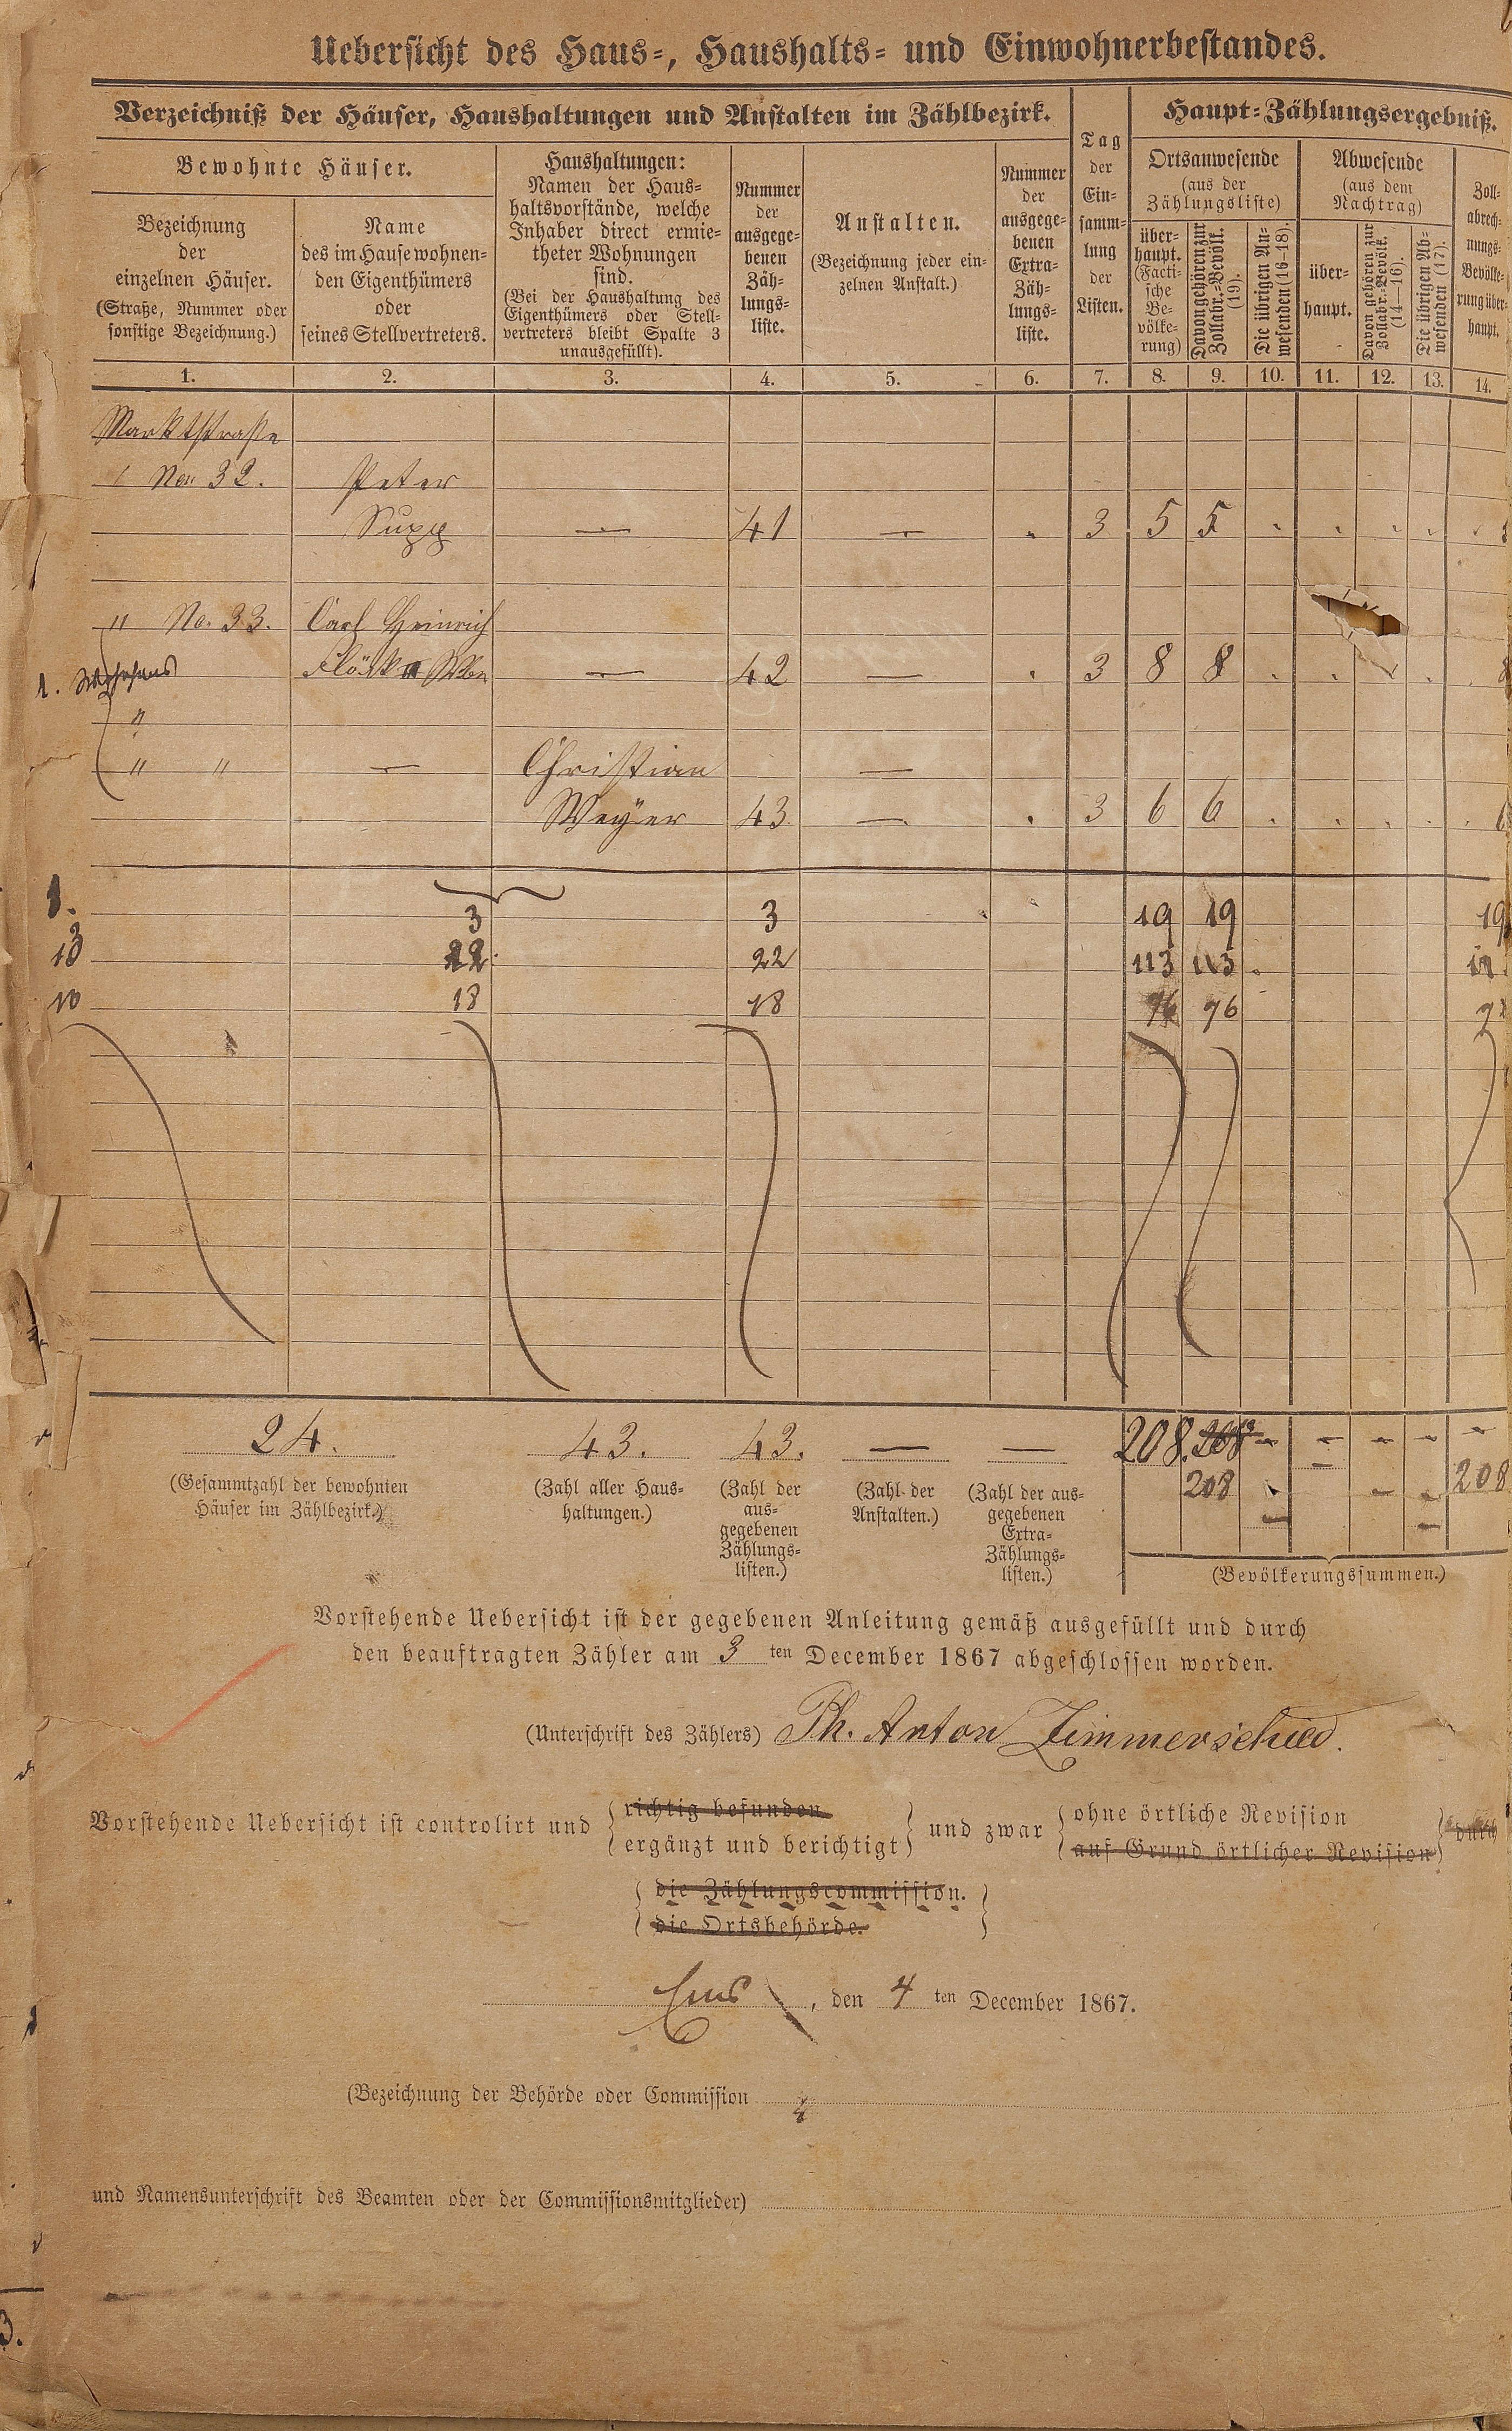 Uebersicht des Haus-, Haushalts- und Einwohnerbestandes.
Verzeichniß der Häuser, Haushaltungen und Anstalten im Zählbezirk.
Bewohnte Häuser.
Bezeichnung
der
einzelnen Häuser.
(Straße, Nummer oder
sonstige Bezeichnung.)
Name
des im Hause wohnen-
den Eigenthümers
oder
seines Stellvertreters.
Haushaltungen:
Namen der Haus-
haltsvorstände, welche
Inhaber direct ermie-
theter Wohnungen
sind.
(Bei der Haushaltung des
Eigenthümers oder Stell-
vertreters bleibt Spalte 3
unausgefüllt).
Nummer
der
ausgege-
benen
Zäh-
lungs-
liste.
Anstalten.
(Bezeichnung jeder ein-
zelnen Anstalt.)
Nummer
der
ausgege-
benen
Extra-
Zäh-
lungs-
liste.
Tag
der
Ein-
samm-
lung
der
Listen.
Haupt-Zählungsergebniß.
Ortsanwesende
(aus der
Zählungsliste)
über-
haupt.
(Facti-
sche
Be-
völke-
rung)
Davon gehören zur
Zollabr.-Bevölk.
(19).
Die übrigen An-
wesenden (16–18).
Abwesende
(aus dem
Nachtrag)
über-
haupt.
Davon gehören zur
Zollabr.-Bevölk.
(14–16).
Die übrigen Ab-
wesenden (17).
Zoll-
abrech-
nungs-
Bevölke-
rung über-
haupt.
1. 2. 3. 4. 5. 6. 7. 8. 9. 10. 11. 12. 13. 14.
Marktstraße
No. 32. Peter
Supp — 41 — . 3 5 5 . . . . .
" No. 33. Carl Heinrich
1. — 42 — . 3 8 8 . . . .
"
" " — Christian —
Weyer 43. — . 3 6 6 . . . . .
1. 3 3 19 19 19
13 22 22 113 113
10 18 18 76 76
24. 43. 43. — — 208. 208 — — — — —
208 — — 208
(Gesammtzahl der bewohnten
Häuser im Zählbezirk.)
(Zahl aller Haus-
haltungen.)
(Zahl der
aus-
gegebenen
Zählungs-
listen.)
(Zahl der
Anstalten.)
(Zahl der aus-
gegebenen
Extra-
Zählungs-
listen.)
(Bevölkerungssummen.)
Vorstehende Uebersicht ist der gegebenen Anleitung gemäß ausgefüllt und durch
den beauftragten Zähler am 3 ten December 1867 abgeschlossen worden.
(Unterschrift des Zählers) Ph. Anton Zimmerschied.
Vorstehende Uebersicht ist controlirt und { richtig befunden / ergänzt und berichtigt } und zwar { ohne örtliche Revision / auf Grund örtlicher Revision } durch
die Zählungscommission.
die Ortsbehörde.
Ems, den 4 ten December 1867.
(Bezeichnung der Behörde oder Commission
und Namensunterschrift des Beamten oder der Commissionsmitglieder)
3.